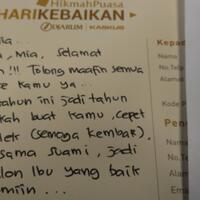 HikmahPuasa
HARIKEBAIKAN
DJARUM KASKUS
Mia, Selamat
!!! Tolong maafin semua
ke kamu ya...
tahun ini jadi tahun
kah buat kamu, cepet
(semoga kembar),
sama suami, jadi
lon Ibu yang baik
miin...
Kepad
Nama
No.Te
Alama
Kode P
Pen
Nama
No.Te
Alama
Email